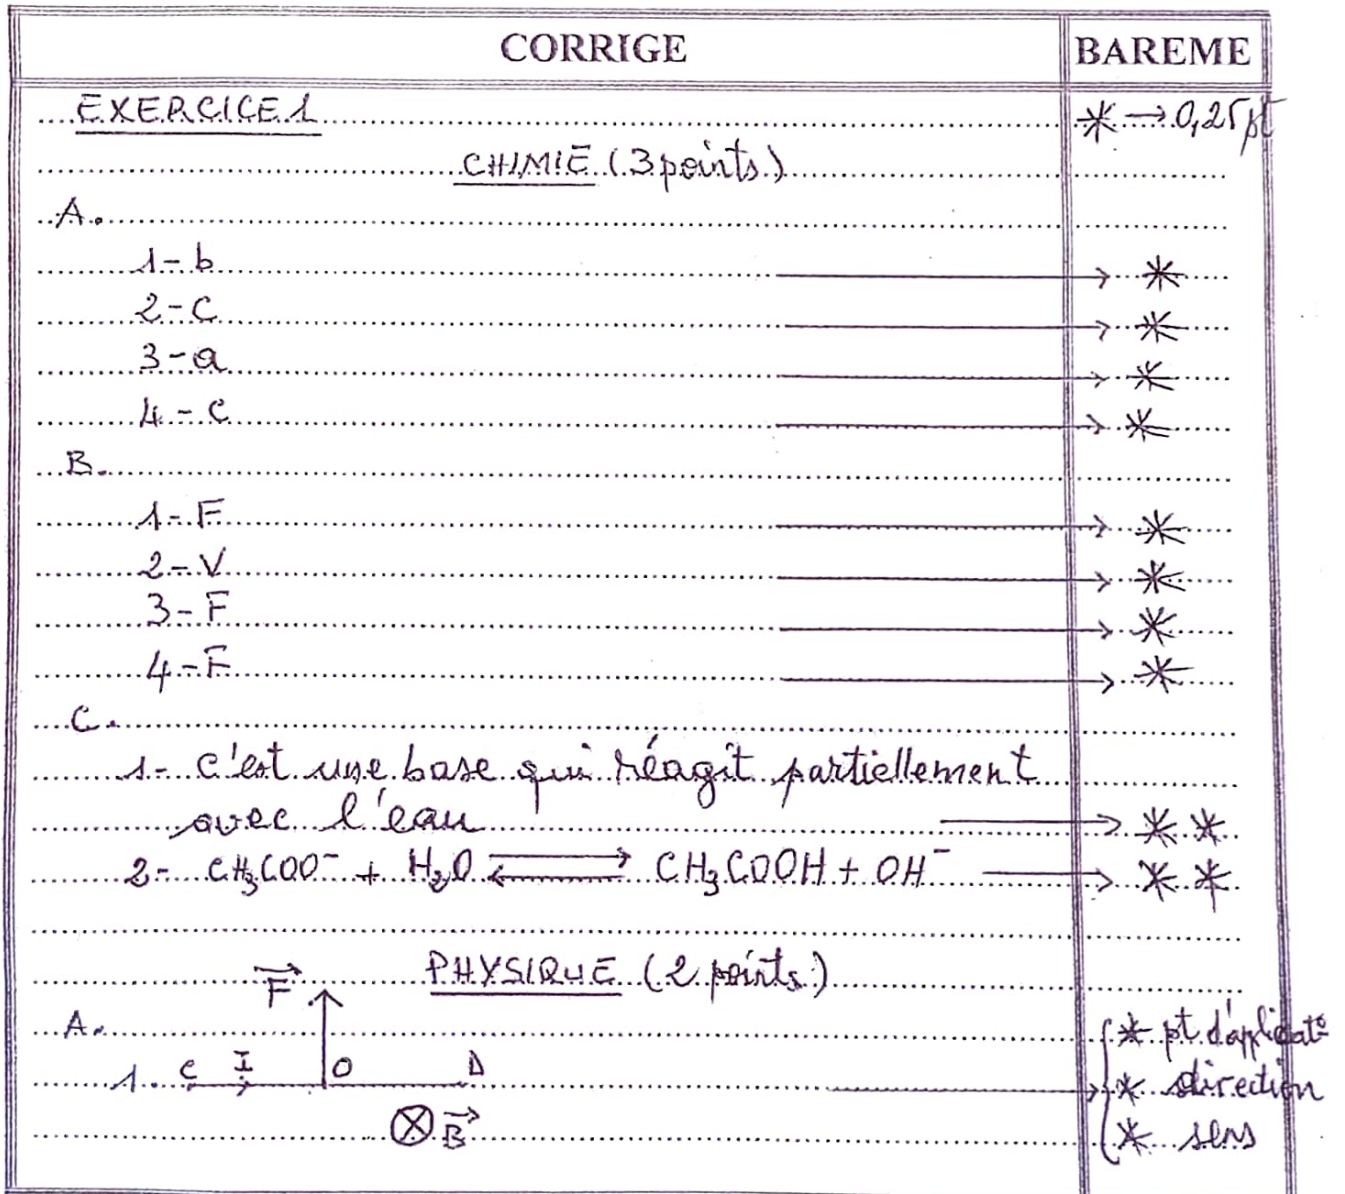 CORRIGE BAREME
EXERCICE 1 * → 0,25 pt
CHIMIE (3 points)
A.
1- b → *
2- c → *
3- a → *
4- c → *
B.
1- F → *
2- V → *
3- F → *
4- F → *
C.
1- c'est une base qui réagit partiellement
avec l'eau → * *
2- CH₃COO⁻ + H₂O ⇌ CH₃COOH + OH⁻ → * *
PHYSIQUE (2 points)
F⃗
A. * pt d'applicatº
1. C I O D → * direction
⊗ B⃗ * sens